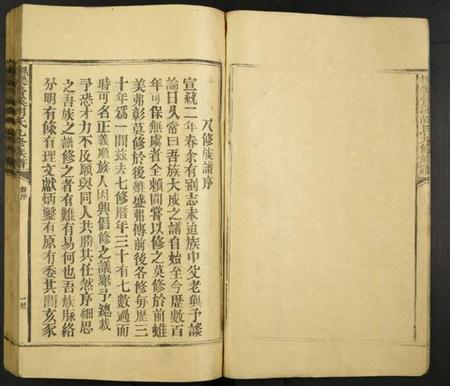 八修族譜序
宣統二年春余有別志未逭族中父老與予談
論日久常曰吾族大成之譜自始至今歷數百
年可保無虞者全賴間嘗以修之莫修於前雖
美弗彰莫修於後雖盛弗傳前後各修毎歷三
十年爲一間茲去七修曆年三十有七數過而
時可名正義順族人因興倡修之議舉予總裁
予恐才力不及願與同人共勝其任然序細思
之吾族之譜修之者有難有易何也吾族脉絡
分明有條有理文獻炳鑿有原有委其間亥豕